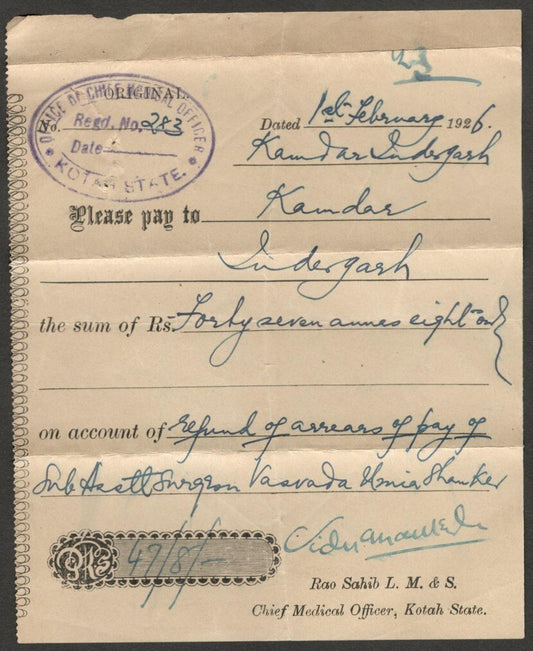 23
ORIGINAL
OFFICE OF CHIEF MEDICAL OFFICER
No.
Regd. No. 283
Date
KOTAH STATE.
Dated 1st February 1926.
Kamdar Indergarh
Please pay to Kamdar
Indergarh
the sum of Rs. Forty seven annes eight only
on account of refund of arrears of pay of
Sub Asstt Surgeon Vasvada Umia Shanker
Rs 47/8/-
Rao Sahib L. M. & S.
Chief Medical Officer, Kotah State.